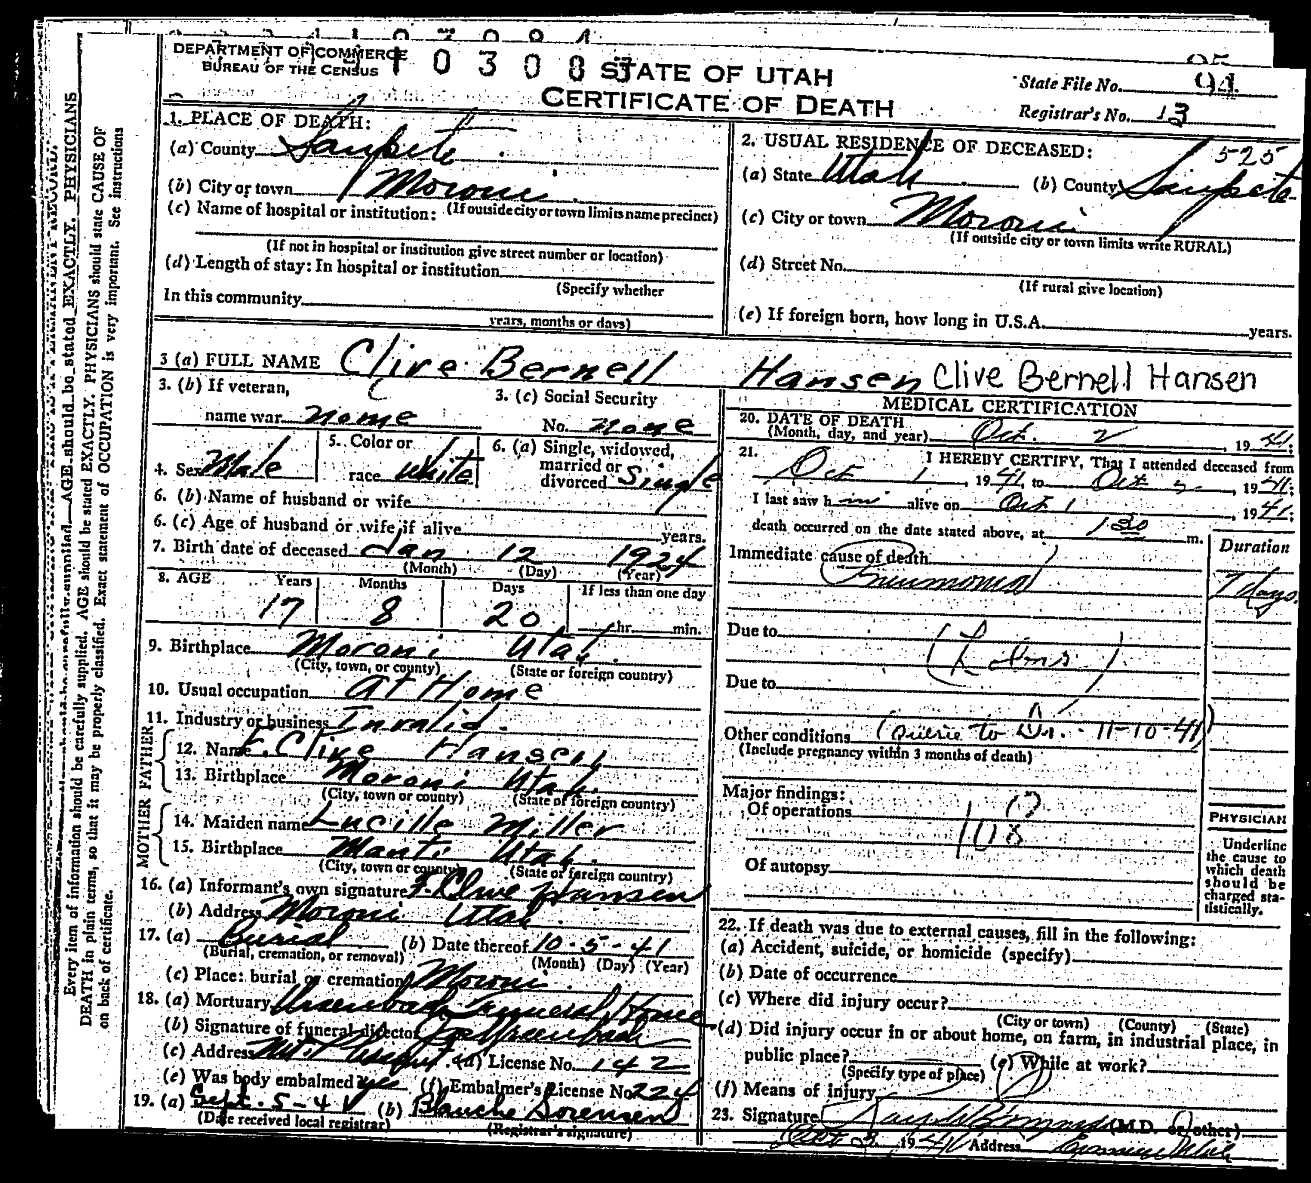 DEPARTMENT OF COMMERCE
BUREAU OF THE CENSUS
STATE OF UTAH
CERTIFICATE OF DEATH
State File No. 94
Registrar's No. 13
1. PLACE OF DEATH:
(a) County Sanpete
(b) City or town Moroni
(If outside city or town limits name precinct)
(c) Name of hospital or institution:
(If not in hospital or institution give street number or location)
(d) Length of stay: In hospital or institution
(Specify whether
In this community
years, months or days)
2. USUAL RESIDENCE OF DECEASED:
525
(a) State Utah (b) County Sanpete
(c) City or town Moroni
(If outside city or town limits write RURAL)
(d) Street No.
(If rural give location)
(e) If foreign born, how long in U.S.A. years.
3 (a) FULL NAME Clive Bernell Hansen Clive Bernell Hansen
3. (b) If veteran,
name war none
3. (c) Social Security
No. none
4. Sex Male
5. Color or
race White
6. (a) Single, widowed,
married or
divorced Single
6. (b) Name of husband or wife
6. (c) Age of husband or wife if alive years.
7. Birth date of deceased Jan 12 1924
(Month) (Day) (Year)
8. AGE Years Months Days If less than one day
17 8 20 hr. min.
9. Birthplace Moroni Utah
(City, town, or county) (State or foreign country)
10. Usual occupation at Home
11. Industry or business Invalid
FATHER
12. Name F. Clive Hansen
13. Birthplace Moroni Utah
(City, town or county) (State of foreign country)
MOTHER
14. Maiden name Lucille Miller
15. Birthplace Manti Utah
(City, town or county) (State of foreign country)
16. (a) Informant's own signature F. Clive Hansen
(b) Address Moroni Utah
17. (a) Burial (b) Date thereof 10-5-41
(Burial, cremation, or removal) (Month) (Day) (Year)
(c) Place: burial or cremation Moroni
18. (a) Mortuary Funeral Home
(b) Signature of funeral director
(c) Address Mt. Pleasant (d) License No. 142
(e) Was body embalmed yes (f) Embalmer's License No. 224
19. (a) Sept. 5-41 (b) Blanche Sorensen
(Date received local registrar) (Registrar's signature)
MEDICAL CERTIFICATION
20. DATE OF DEATH
(Month, day, and year) Oct. 2 1941
21. I HEREBY CERTIFY, That I attended deceased from
Oct 1, 1941, to Oct 2, 1941;
I last saw him alive on Oct 1, 1941;
death occurred on the date stated above, at 1:30 m.
Duration
Immediate cause of death
Pneumonia 7 days.
Due to
(Lobar)
Due to
Other conditions (Querie to Dr. 11-10-41)
(Include pregnancy within 3 months of death)
Major findings:
Of operations
108
Of autopsy
PHYSICIAN
Underline
the cause to
which death
should be
charged sta-
tistically.
22. If death was due to external causes, fill in the following:
(a) Accident, suicide, or homicide (specify)
(b) Date of occurrence
(c) Where did injury occur?
(City or town) (County) (State)
(d) Did injury occur in or about home, on farm, in industrial place, in
public place? (e) While at work?
(Specify type of place)
(f) Means of injury
23. Signature (M.D. or other)
Oct 3 1941 Address
Every item of information should be carefully supplied. AGE should be stated EXACTLY. PHYSICIANS should state CAUSE OF
DEATH in plain terms, so that it may be properly classified. Exact statement of OCCUPATION is very important. See instructions
on back of certificate.